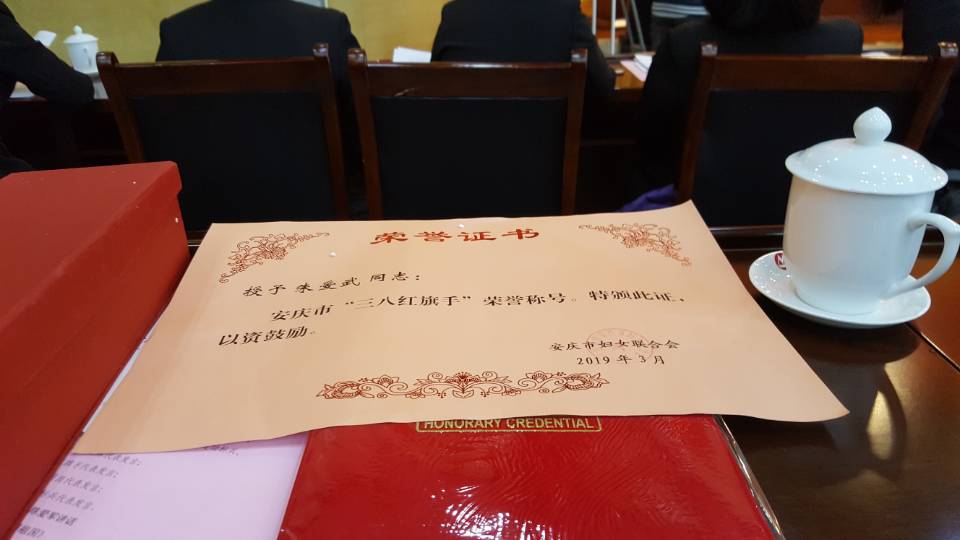 荣誉证书
授予 朱爱武 同志：
安庆市“三八红旗手”荣誉称号。特颁此证，
以资鼓励。
安庆市妇女联合会
2019 年 3 月
HONORARY CREDENTIAL
代表发言；
代表发言；
代表发言。
讲话